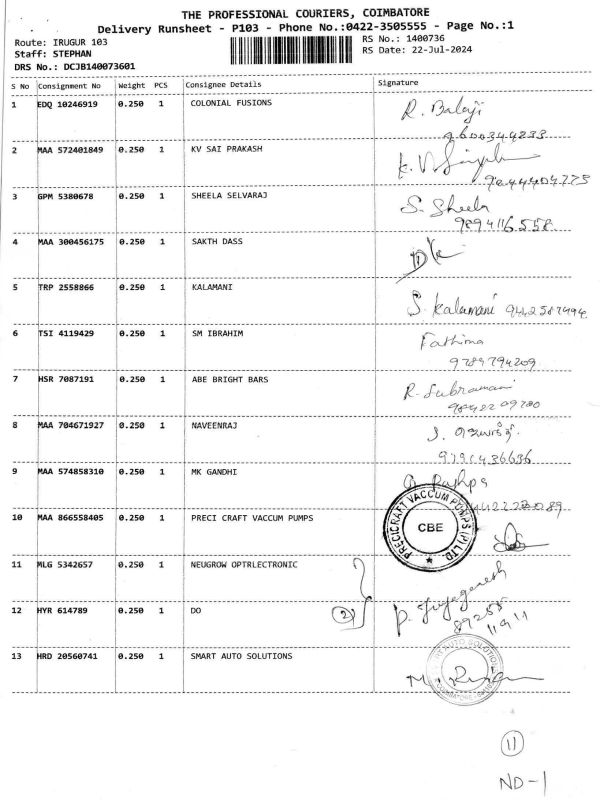 THE PROFESSIONAL COURIERS, COIMBATORE
Delivery Runsheet - P103 - Phone No.:0422-3505555 - Page No.:1
Route: IRUGUR 103
RS No.: 1400736
Staff: STEPHAN
RS Date: 22-Jul-2024
DRS No.: DCJB140073601
S No Consignment No Weight PCS Consignee Details Signature
1 EDQ 10246919 0.250 1 COLONIAL FUSIONS R. Balaji
9600344233
2 MAA 572401849 0.250 1 KV SAI PRAKASH
9844404775
3 GPM 5380678 0.250 1 SHEELA SELVARAJ S. Sheela
9894116558
4 MAA 300456175 0.250 1 SAKTH DASS
5 TRP 2558866 0.250 1 KALAMANI S. Kalamani 9442587494
6 TSI 4119429 0.250 1 SM IBRAHIM Fathima
9789794209
7 HSR 7087191 0.250 1 ABE BRIGHT BARS R. Subramani
9842209780
8 MAA 704671927 0.250 1 NAVEENRAJ
9 MAA 574858310 0.250 1 MK GANDHI
10 MAA 866558405 0.250 1 PRECI CRAFT VACCUM PUMPS
PRECICRAFT VACCUM PUMPS (P) LTD.
CBE
11 MLG 5342657 0.250 1 NEUGROW OPTRLECTRONIC
12 HYR 614789 0.250 1 DO 2
89255
11911
13 HRD 20560741 0.250 1 SMART AUTO SOLUTIONS
11
ND-1